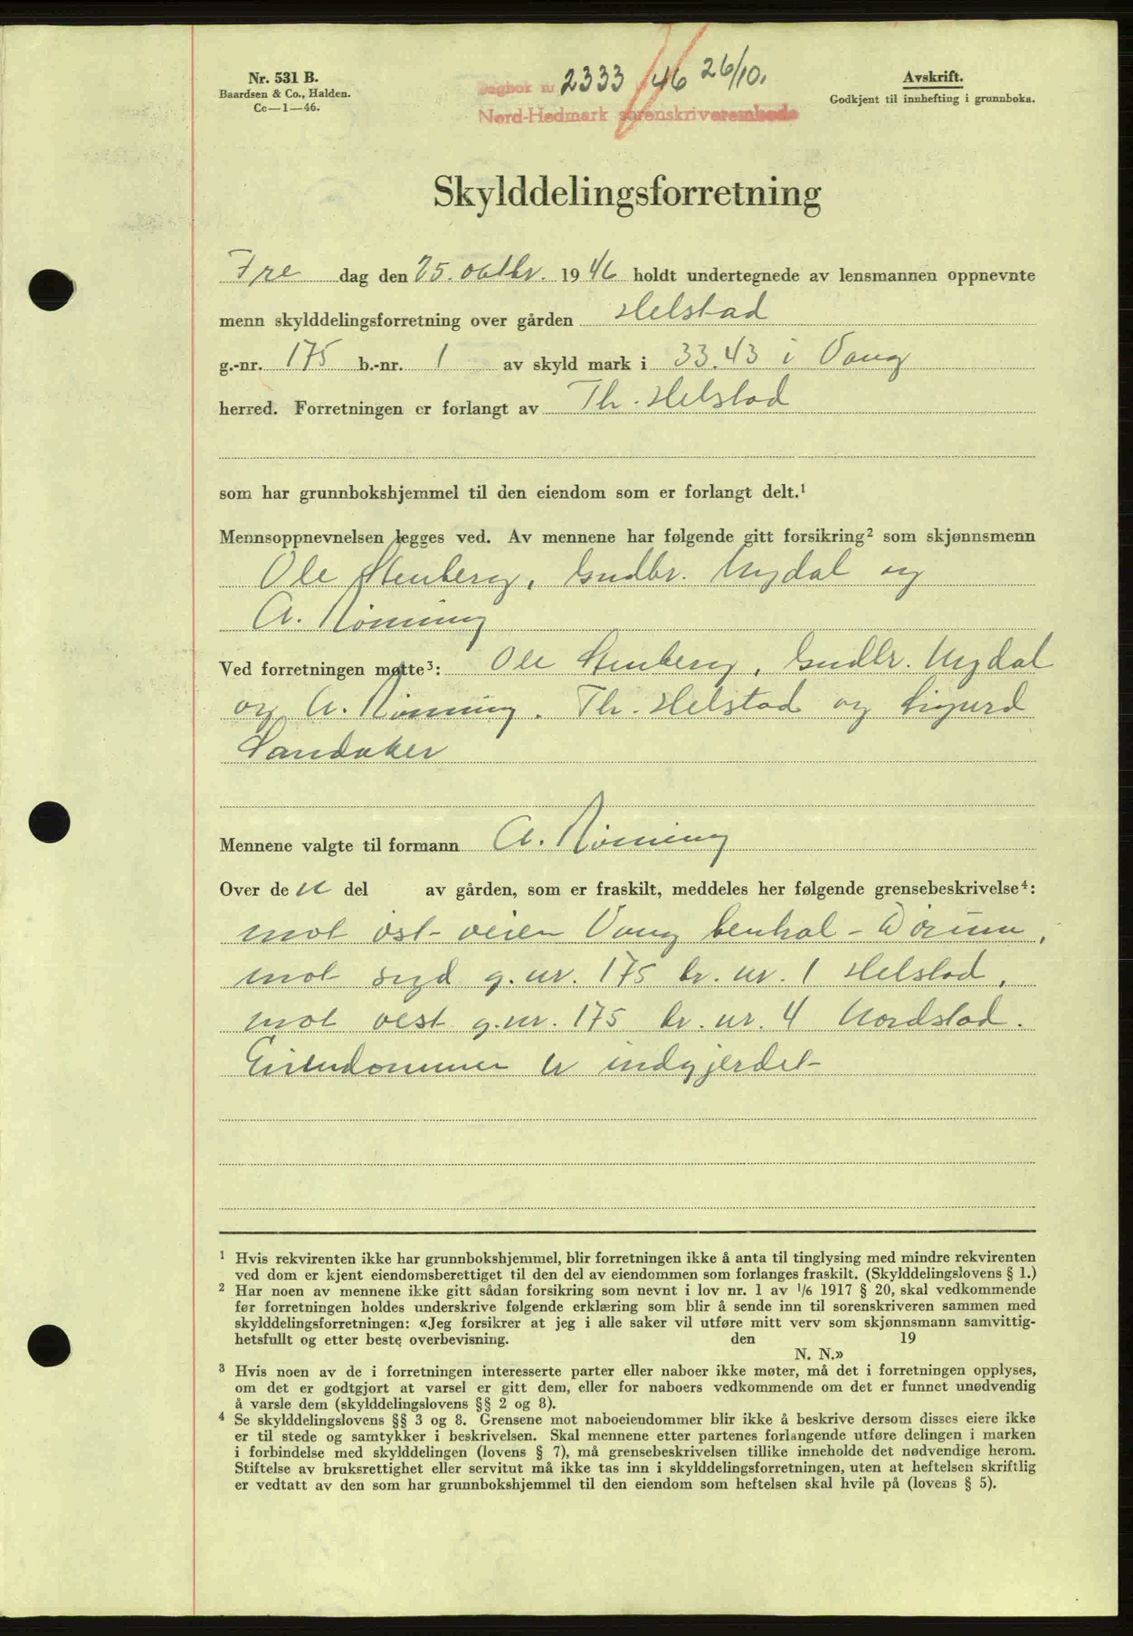 Nr. 531 B.
Baardsen & Co., Halden.
Cc—1—46.
Dagbok nr 2333 /46 26/10.
Nord-Hedmark sorenskriverembede
Avskrift.
Godkjent til innhefting i grunnboka.
Skylddelingsforretning
Fre dag den 25. oktbr. 1946 holdt undertegnede av lensmannen oppnevnte
menn skylddelingsforretning over gården Helstad
g.-nr. 175 b.-nr. 1 av skyld mark i 33.43 i Vang
herred. Forretningen er forlangt av Th. Helstad
som har grunnbokshjemmel til den eiendom som er forlangt delt.¹
Mennsoppnevnelsen legges ved. Av mennene har følgende gitt forsikring² som skjønnsmenn
Ole Stenberg, Gudbr. Mydal og
A. Rønning
Ved forretningen møtte³: Ole Stenberg, Gudbr. Mydal
og A. Rønning. Th. Helstad og Sigurd
Sandaker
Mennene valgte til formann A. Rønning
Over de n del av gården, som er fraskilt, meddeles her følgende grensebeskrivelse⁴:
mot øst veien Vang Senhal -
mot syd g. nr. 175 br. nr. 1 Helstad,
mot vest g. nr. 175 br. nr. 4 Nordstad.
Eiendommen er indgjerdet
¹ Hvis rekvirenten ikke har grunnbokshjemmel, blir forretningen ikke å anta til tinglysing med mindre rekvirenten
ved dom er kjent eiendomsberettiget til den del av eiendommen som forlanges fraskilt. (Skylddelingslovens § 1.)
² Har noen av mennene ikke gitt sådan forsikring som nevnt i lov nr. 1 av ¹/6 1917 § 20, skal vedkommende
før forretningen holdes underskrive følgende erklæring som blir å sende inn til sorenskriveren sammen med
skylddelingsforretningen: «Jeg forsikrer at jeg i alle saker vil utføre mitt verv som skjønnsmann samvittig-
hetsfullt og etter beste overbevisning. den 19
N. N.»
³ Hvis noen av de i forretningen interesserte parter eller naboer ikke møter, må det i forretningen opplyses,
om det er godtgjort at varsel er gitt dem, eller for naboers vedkommende om det er funnet unødvendig
å varsle dem (skylddelingslovens §§ 2 og 8).
⁴ Se skylddelingslovens §§ 3 og 8. Grensene mot naboeiendommer blir ikke å beskrive dersom disses eiere ikke
er til stede og samtykker i beskrivelsen. Skal mennene etter partenes forlangende utføre delingen i marken
i forbindelse med skylddelingen (lovens § 7), må grensebeskrivelsen tillike inneholde det nødvendige herom.
Stiftelse av bruksrettighet eller servitut må ikke tas inn i skylddelingsforretningen, uten at heftelsen skriftlig
er vedtatt av den som har grunnbokshjemmel til den eiendom som heftelsen skal hvile på (lovens § 5).